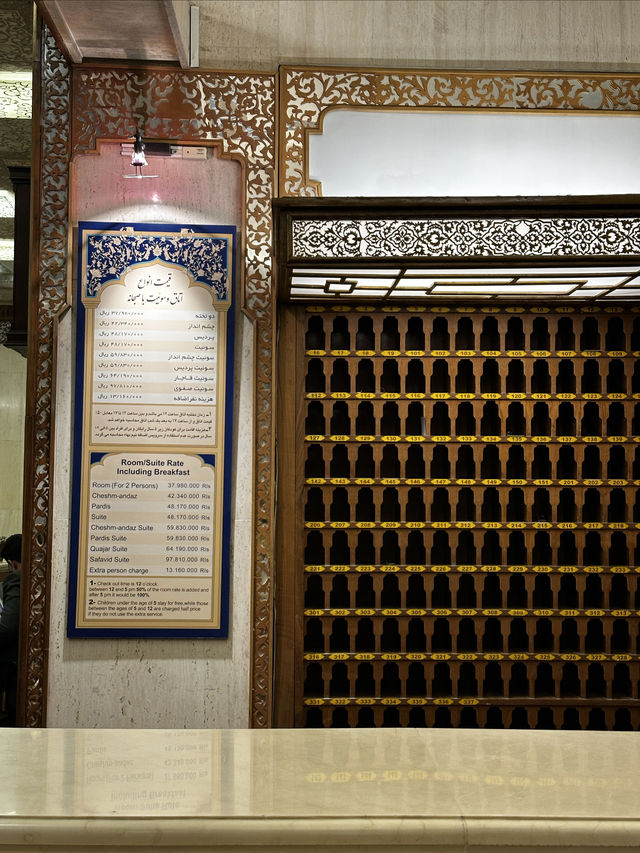 قیمت انواع
اتاق و سوئیت با صبحانه
دو تخته ۳۷/۹۸۰/۰۰۰ ریال
چشم انداز ۴۲/۳۴۰/۰۰۰ ریال
پردیس ۴۸/۱۷۰/۰۰۰ ریال
سوئیت ۴۸/۱۷۰/۰۰۰ ریال
سوئیت چشم انداز ۵۹/۸۳۰/۰۰۰ ریال
سوئیت پردیس ۵۹/۸۳۰/۰۰۰ ریال
سوئیت قاجار ۶۴/۱۹۰/۰۰۰ ریال
سوئیت صفوی ۹۷/۸۱۰/۰۰۰ ریال
هزینه نفر اضافه ۱۳/۱۶۰/۰۰۰ ریال
Room/Suite Rate
Including Breakfast
Room (For 2 Persons) 37.980.000 Rls
Cheshm-andaz 42.340.000 Rls
Pardis 48.170.000 Rls
Suite 48.170.000 Rls
Cheshm-andaz Suite 59.830.000 Rls
Pardis Suite 59.830.000 Rls
Quajar Suite 64.190.000 Rls
Safavid Suite 97.810.000 Rls
Extra person charge 13.160.000 Rls
1- Check out time is 12 o'clock.
between 12 and 5 pm 50% of the room rate is added and
after 5 pm it would be 100%.
2- Children under the age of 5 stay for free,while those
between the ages of 5 and 12 are charged half price
if they do not use the extra service.
16 17 18 19 101 102 103 104 105 106 107 108 109
112 113 114 115 116 117 118 119 120 121 122 123 124
127 128 129 130 131 132 133 134 135 136 137 138 139
142 143 144 145 146 147 148 149 150 151 201 202 203
206 207 208 209 210 211 212 213 214 215 216 217 218
221 222 223 224 225 226 227 228 229 230 231 232 233
301 302 303 304 305 306 307 308 309 310 311 312 313
316 317 318 319 320 321 322 323 324 325 326 327 328
331 332 333 334 335 336 337